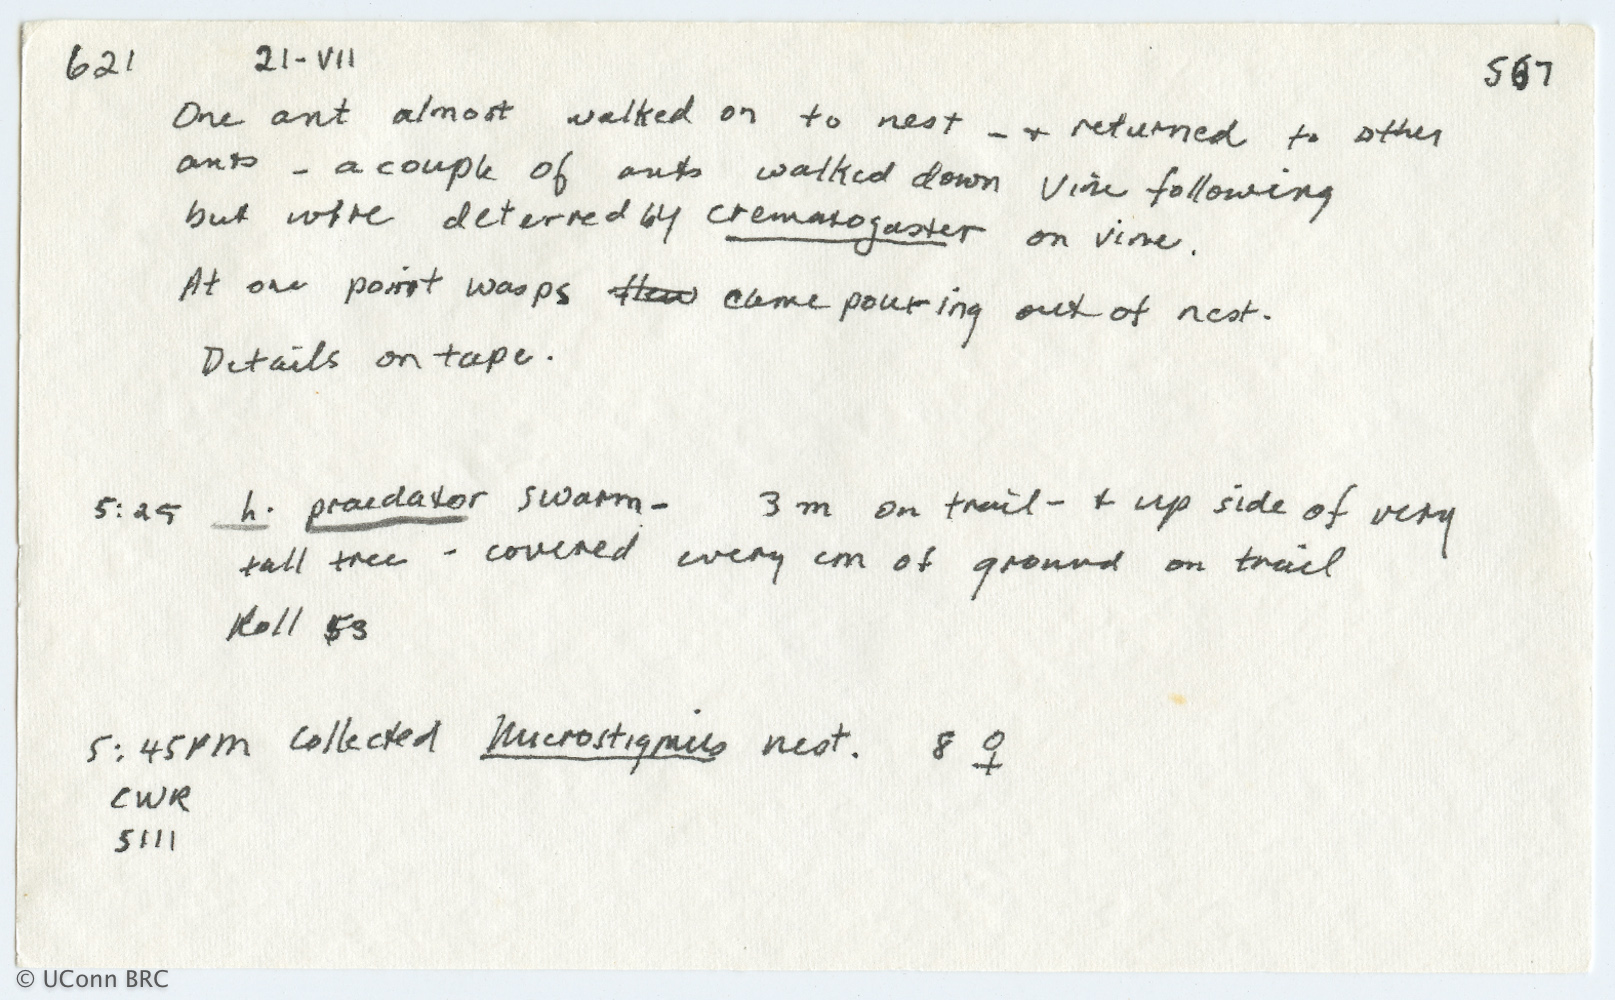 621 21-VII 567
One ant almost walked on to nest - + returned to other
ants - a couple of ants walked down vine following
but were deterred by crematogaster on vine.
At one point wasps flew came pouring out of nest.
Details on tape.
5:25 h. praedator swarm- 3 m on trail- + up side of very
tall tree - covered every cm of ground on trail
Roll 53
5:45PM Collected Microstigmus nest. 8 ♀
CWR
5111
© UConn BRC